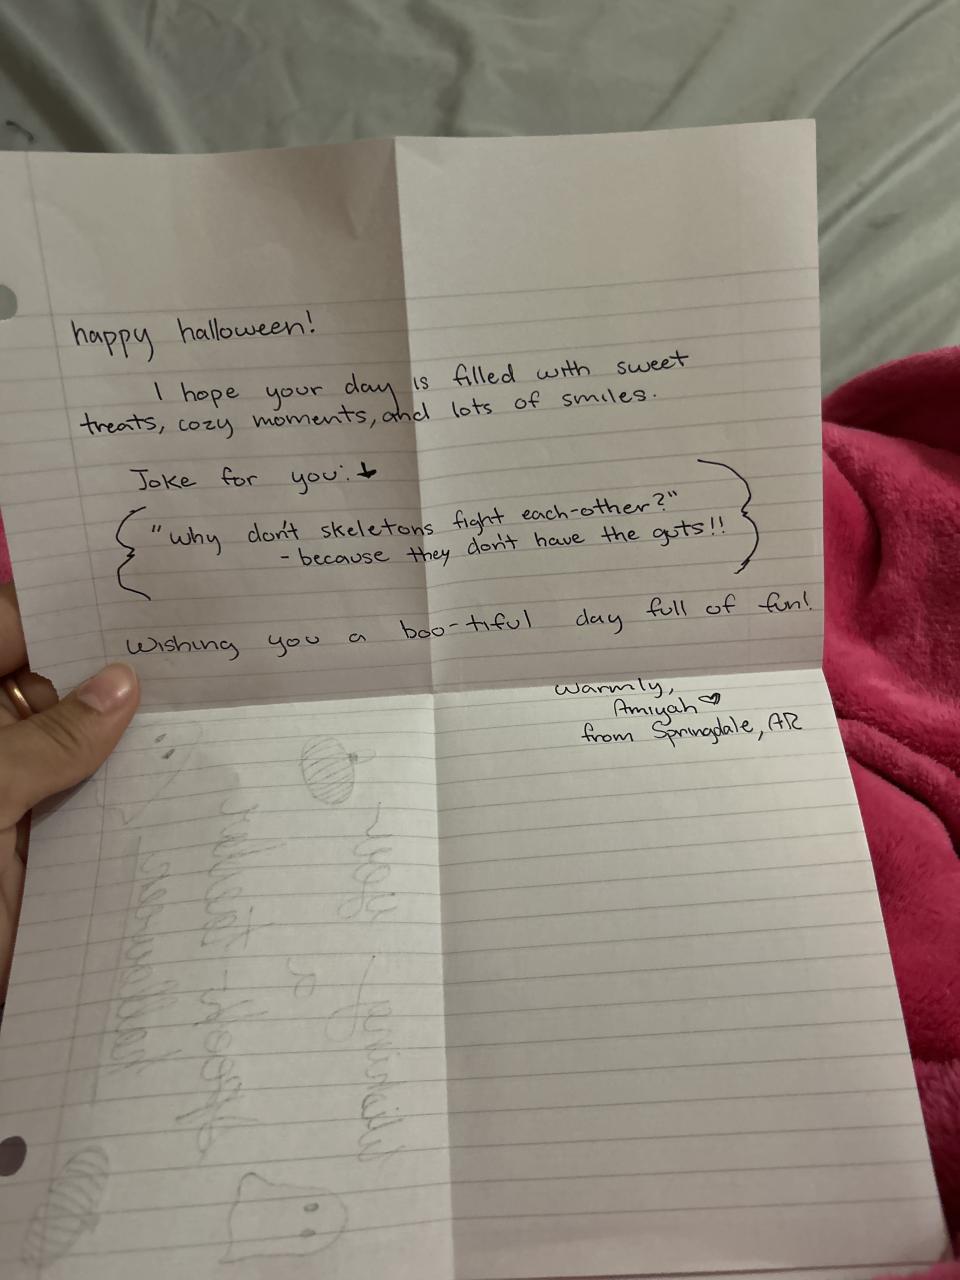 happy halloween!
I hope your day is filled with sweet
treats, cozy moments, and lots of smiles.
Joke for you:
"why don't skeletons fight each-other?"
- because they don't have the guts!!
Wishing you a boo-tiful day full of fun!
Warmly,
Amiyah
from Springdale, AR